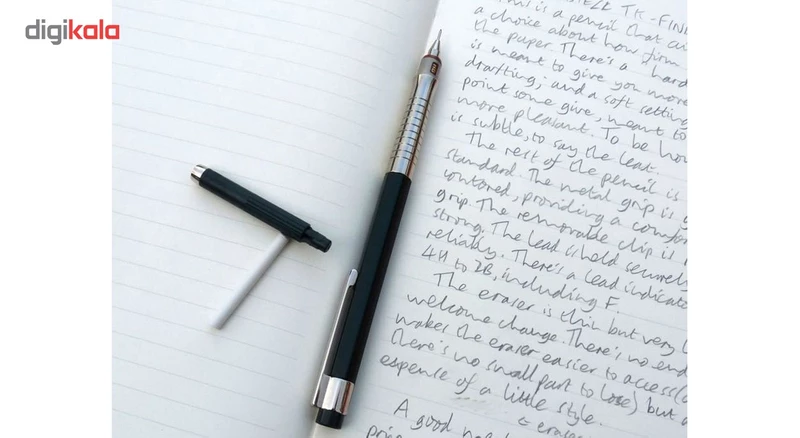 digikala
TK-FINE
This is a pencil that
a choice about how firm
the paper. There's a hard
is meant to give you more
drafting; and a soft setting
point some give, meant to
more pleasant. To be
is subtle, to say the least.
The rest of the pencil is
standard. The metal grip is
contored, providing a
grip. The removable clip is
strong. The lead is held securely
reliably. There's a lead indicator
4H to 2B, including F.
The eraser is thin but very
welcome change. There's no
makes the eraser easier to access (
there's no small part to lose) but
expense of a little style.
← eraser
A good